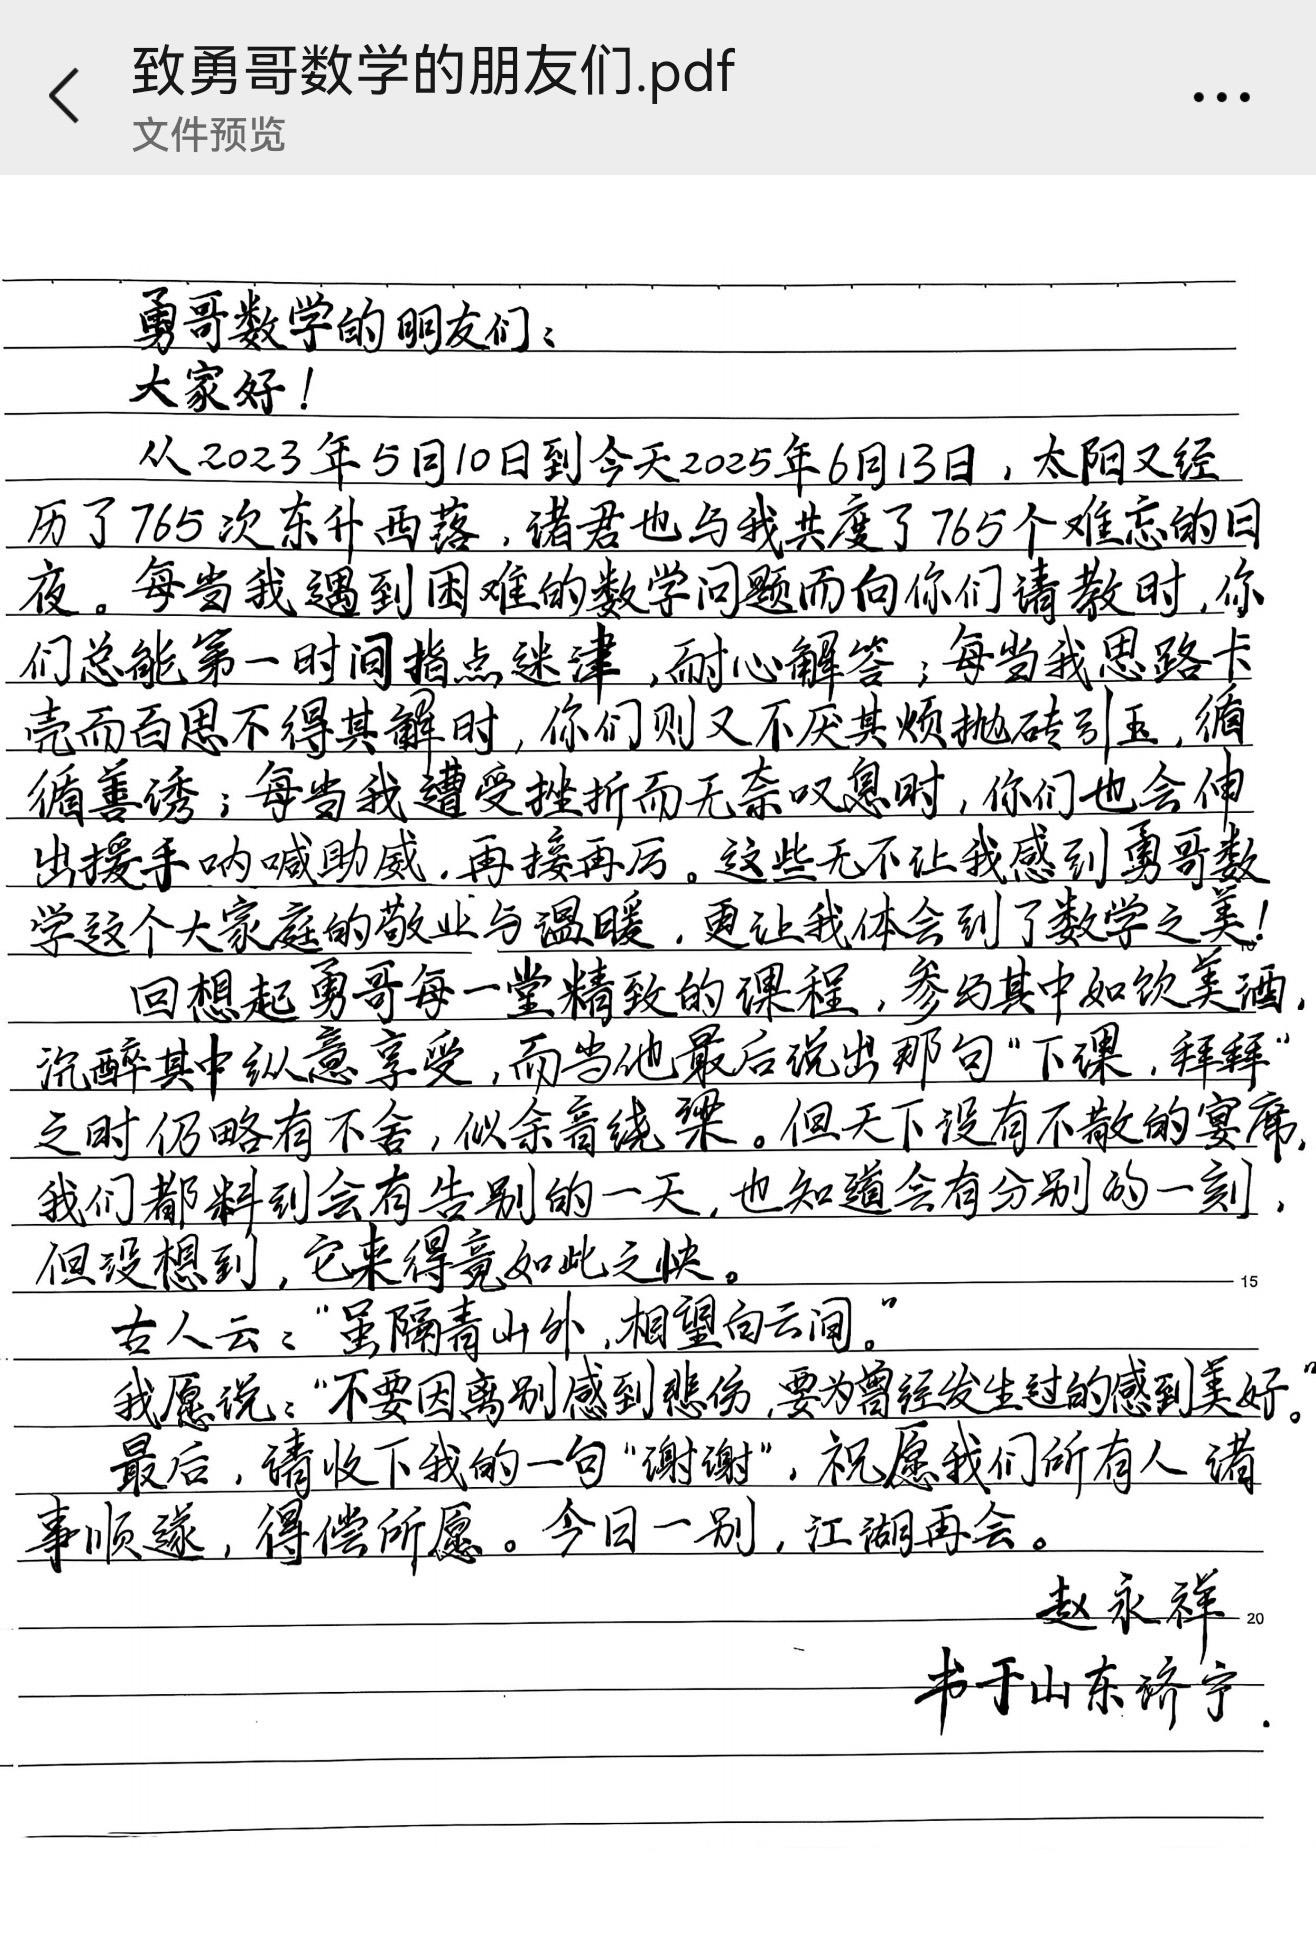 致勇哥数学的朋友们.pdf
文件预览
勇哥数学的朋友们：
大家好！
从2023年5月10日到今天2025年6月13日，太阳又经
历了765次东升西落，诸君也与我共度了765个难忘的日
夜。每当我遇到困难的数学问题而向你们请教时，你
们总能第一时间指点迷津，耐心解答；每当我思路卡
壳而百思不得其解时，你们则又不厌其烦抛砖引玉，循
循善诱；每当我遭受挫折而无奈叹息时，你们也会伸
出援手呐喊助威，再接再厉。这些无不让我感到勇哥数
学这个大家庭的敬业与温暖，更让我体会到了数学之美！
10
回想起勇哥每一堂精致的课程，参与其中如饮美酒，
沉醉其中纵意享受，而当他最后说出那句“下课，拜拜”
之时仍略有不舍，似余音绕梁。但天下没有不散的宴席，
我们都料到会有告别的一天，也知道会有分别的一刻，
但没想到，它来得竟如此之快。
15
古人云：“虽隔青山外，相望白云间。”
我愿说：“不要因离别感到悲伤，要为曾经发生过的感到美好。”
最后，请收下我的一句“谢谢”，祝愿我们所有人诸
事顺遂，得偿所愿。今日一别，江湖再会。
赵永祥
20
书于山东济宁.